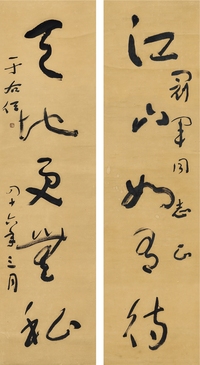 江山如有待
同志正
天地更無私
于右任
四十六年三月